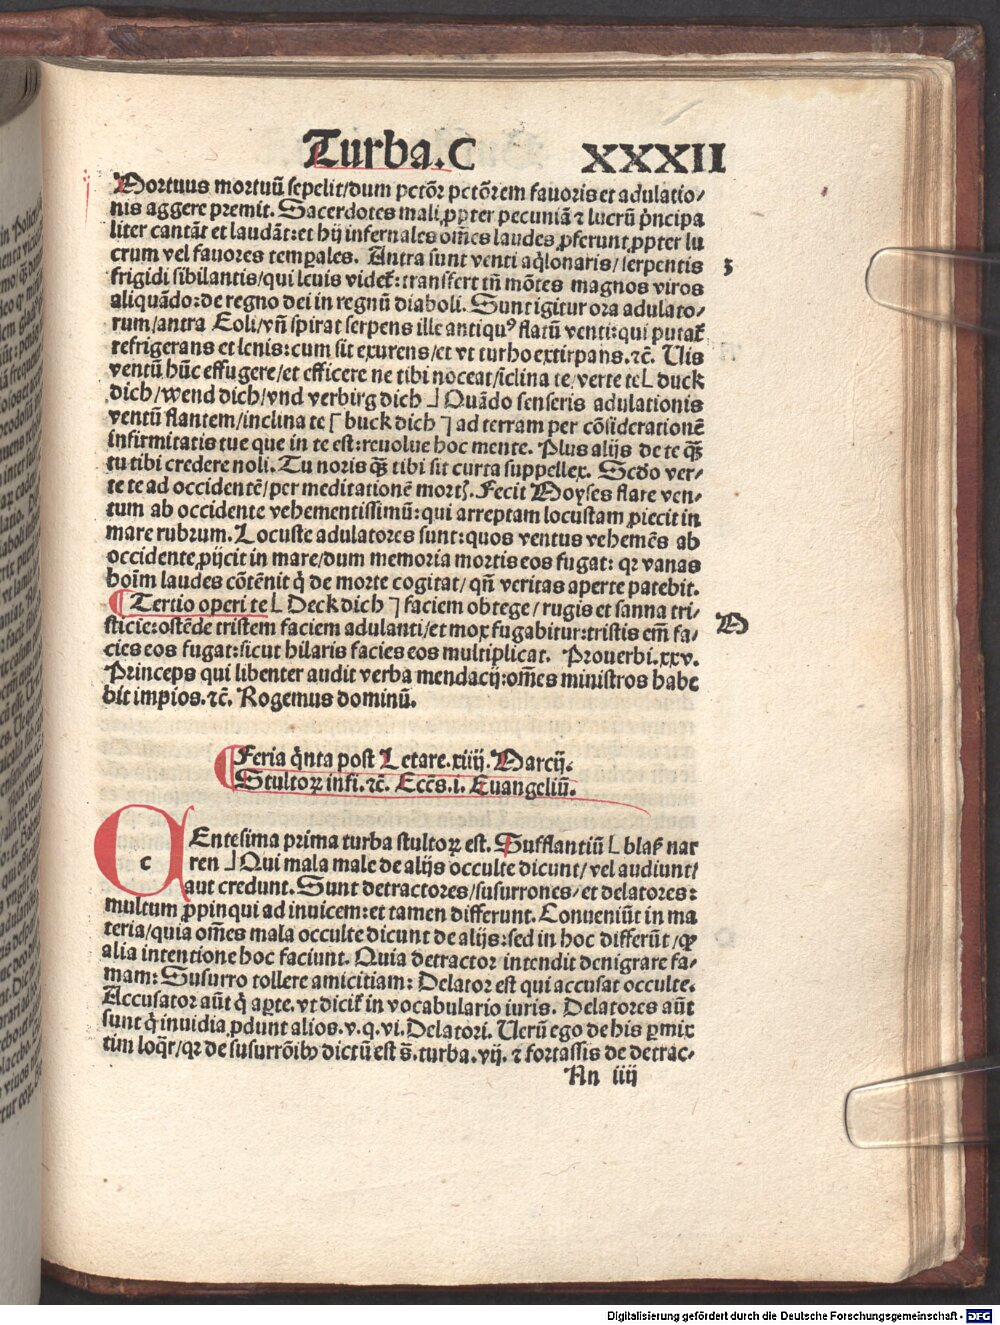 Turba.C XXXII
Mortuus mortuū sepelit/dum pctōr pctōrem fauoris et adulatio/
nis aggere premit. Sacerdotes mali ꝓpter pecuniā ⁊ lucrū p̄ncipa
liter cantāt et laudāt:et hij infernales om̄es laudes ꝓferunt ꝓpter lu
crum vel fauores temꝑales. Antra sunt venti aq̇lonaris/serpentis
frigidi sibilantis/qui leuis videt᷑:transfert tn̄ mōtes magnos viros
aliquādo:de regno dei in regnū diaboli. Sunt igitur ora adulato/
rum/antra Eoli/vn̄ spirat serpens ille antiquꝰ flatū venti:qui putat᷑
refrigerans et lenis:cum sit exurens/et vt turbo extirpans.⁊c̄. Uis
ventū hūc effugere/et efficere ne tibi noceat/īclina te/verte te⌊ duck
dich/wend dich/vnd verbirg dich ⌋ Quādo senseris adulationis
ventū flantem/inclina te ⌈ buck dich ⌉ ad terram per cōsiderationē
infirmitatis tue que in te est:reuolue hoc mente. Plus alijs de te q̄ꝫ
tu tibi credere noli. Tu noris q̄ꝫ tibi sit curta suppellex. Scd̄o ver/
te te ad occidentē/per meditationē mortꝭ. Fecit Moyses flare ven/
tum ab occidente vehementissimū:qui arreptam locustam ꝓiecit in
mare rubrum. Locuste adulatores sunt:quos ventus vehemēs ab
occidente ꝓijcit in mare/dum memoria mortis eos fugat: qꝛ vanas
hoīm laudes cōtēnit q̇ de morte cogitat/ qn̄ veritas aperte patebit.
¶ Tertio operi te⌊ Deck dich ⌉ faciem obtege/ rugis et sanna tri/
sticie:ostēde tristem faciem adulanti/et mox fugabitur:tristis em̄ fa/
cies eos fugat:sicut hilaris facies eos multiplicat. Prouerbi.xxv.
Princeps qui libenter audit verba mendacij:om̄es ministros habe
bit impios.⁊c̄. Rogemus dominū.
3
M
¶ Feria q̇nta post Letare.xiiij. Marcij.
Stultoꝝ infi.⁊c̄. Ecc̄s.i. Euangeliū.
c
CEntesima prima turba stultoꝝ est. Sufflantiū ⌊ blaß nar
ren ⌋ Qui mala male de alijs occulte dicunt/vel audiunt/
aut credunt. Sunt detractores/susurrones/et delatores:
multum ꝓpinqui ad inuicem:et tamen differunt. Conueniūt in ma
teria/quia om̄es mala occulte dicunt de alijs:sed in hoc differūt/ꝙ
alia intentione hoc faciunt. Quia detractor intendit denigrare fa/
mam: Susurro tollere amicitiam: Delator est qui accusat occulte.
Accusator aūt q̇ aꝑte.vt dicit᷑ in vocabulario iuris. Delatores aūt
sunt q̇ inuidia ꝓdunt alios.v.q.vi.Delatori. Uerū ego de his ꝑmix
tim loq̄r/qꝛ de susurrōibꝰ dictū est s̄. turba.vij. ⁊ fortassis de detrac/
An iiij
Digitalisierung gefördert durch die Deutsche Forschungsgemeinschaft - DFG